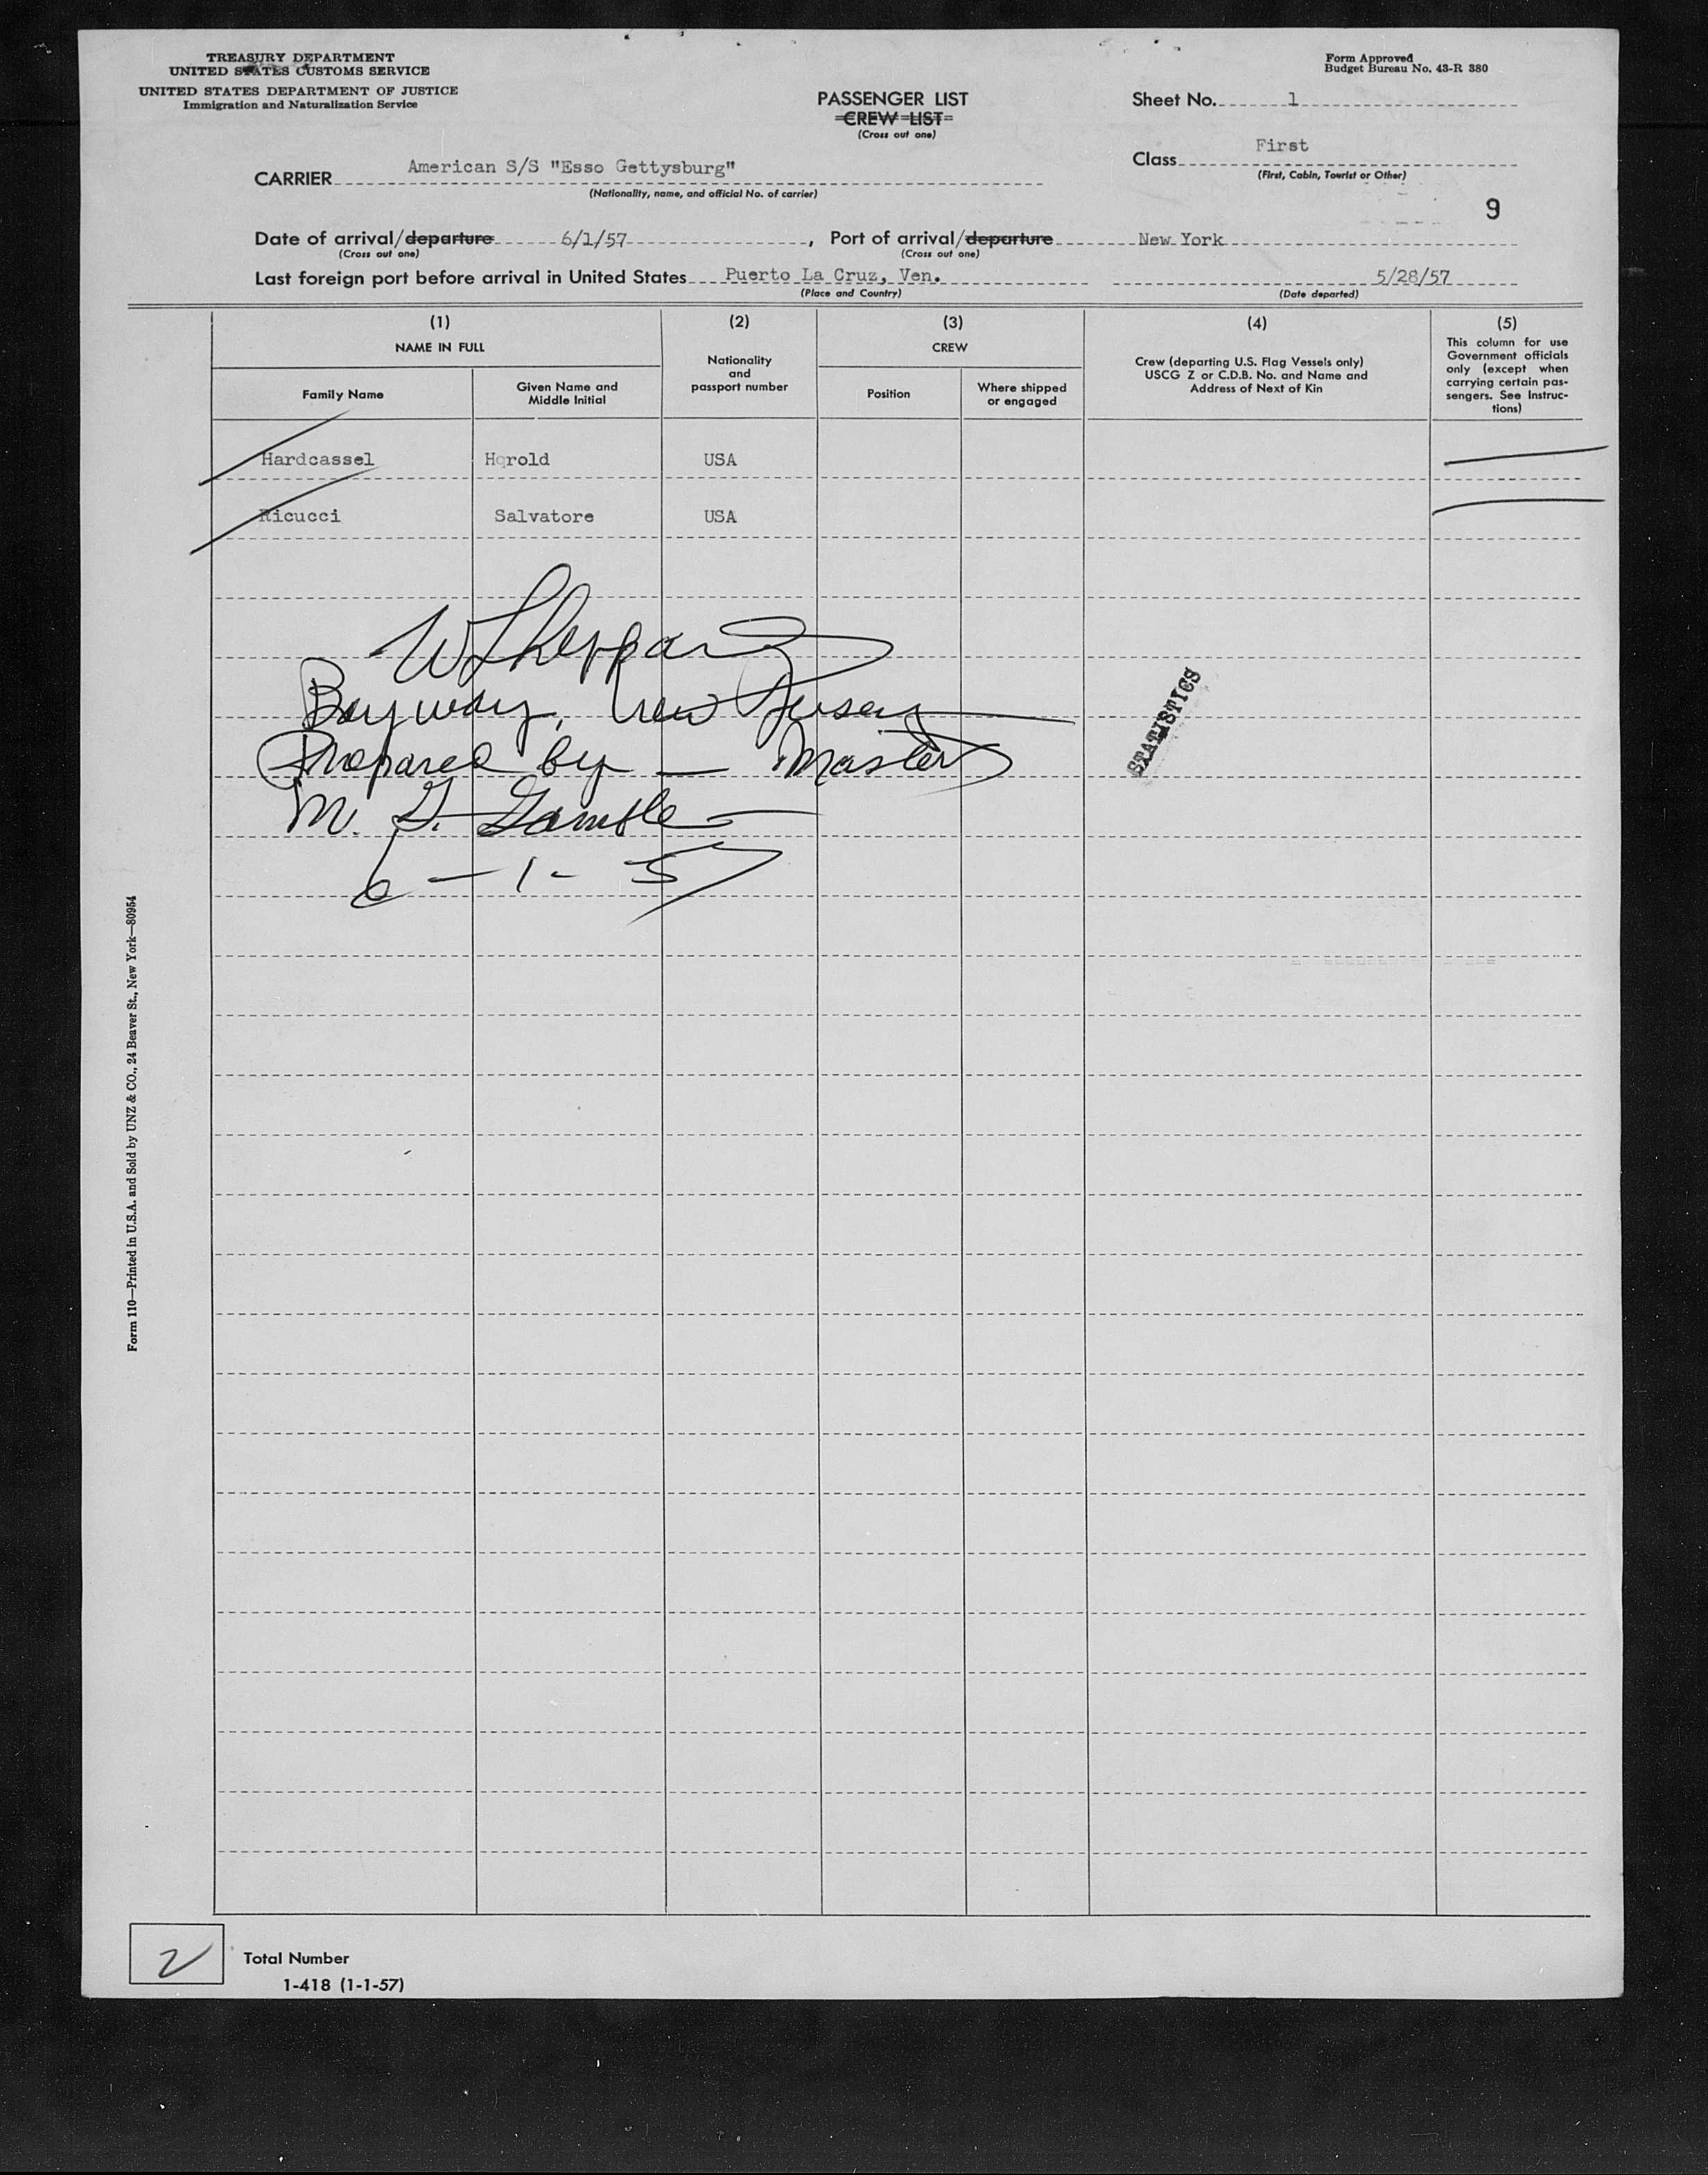 TREASURY DEPARTMENT
UNITED STATES CUSTOMS SERVICE
UNITED STATES DEPARTMENT OF JUSTICE
Immigration and Naturalization Service
Form Approved
Budget Bureau No. 43-R 380
PASSENGER LIST
CREW LIST
(Cross out one)
Sheet No. 1
Class First
(First, Cabin, Tourist or Other)
CARRIER American S/S "Esso Gettysburg"
(Nationality, name, and official No. of carrier)
9
Date of arrival/departure 6/1/57, Port of arrival/departure New York
(Cross out one) (Cross out one)
Last foreign port before arrival in United States Puerto La Cruz, Ven. 5/28/57
(Place and Country) (Date departed)
(1) (2) (3) (4) (5)
NAME IN FULL
Family Name
Given Name and
Middle Initial
Nationality
and
passport number
CREW
Position
Where shipped
or engaged
Crew (departing U.S. Flag Vessels only)
USCG Z or C.D.B. No. and Name and
Address of Next of Kin
This column for use
Government officials
only (except when
carrying certain pas-
sengers. See Instruc-
tions)
Hardcassel Harold USA
Ricucci Salvatore USA
W Sheppard
Bayway, New Jersey
Prepared by — Master
M. G. Gamble
6-1-57
STATISTICS
Form 110—Printed in U.S.A. and Sold by UNZ & CO., 24 Beaver St., New York—80954
2 Total Number
1-418 (1-1-57)